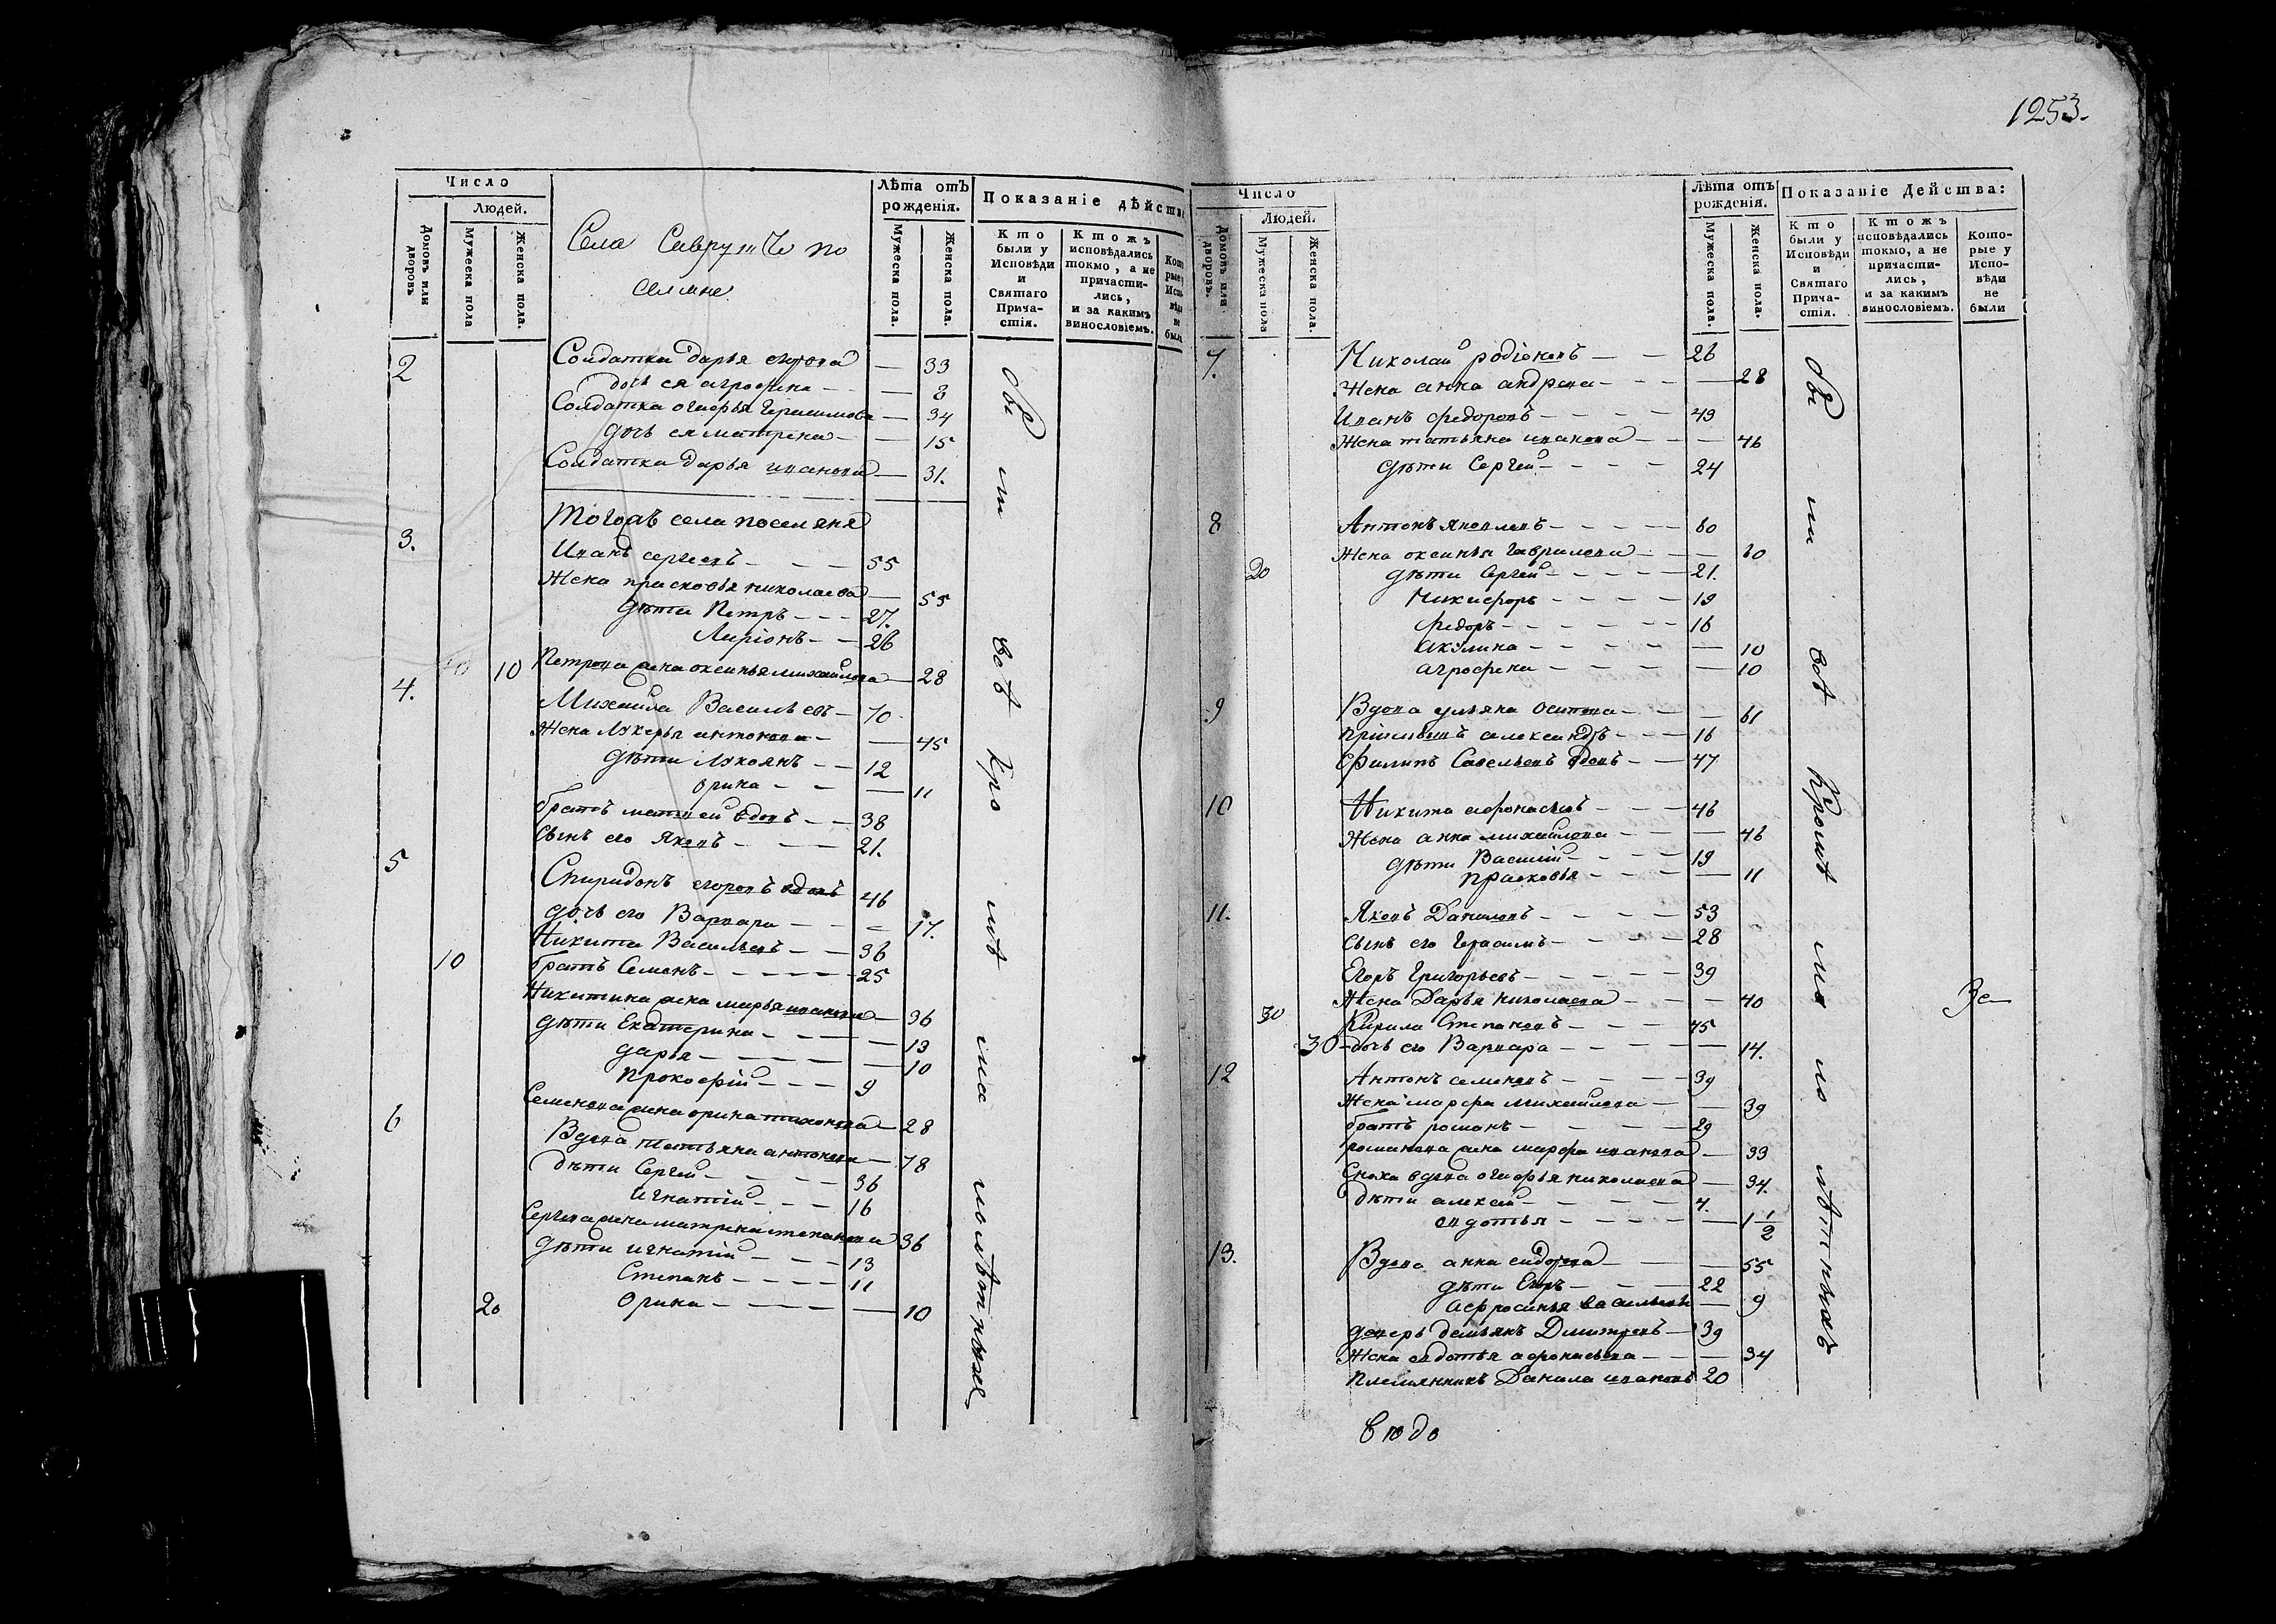 1253.
Число
Людей.
Домовъ или дворовъ
Мужеска пола
Женска пола.
Лѣта отъ рожденія.
Мужеска пола.
Женска пола.
Показаніе дѣйств
Кто были у Исповѣди и Святаго Причастія.
Ктожъ исповѣдались токмо, а не причастились, и за какимъ винословіемъ.
Которые у Исповѣди не были
Села по
селяне
2
Солдатка дарья — 33
дочь ея агрофена — — 8
Солдатка огафья Герасимова — 34
дочь ея матрена — — 15
Солдатка дарья иванова — 31.
Тогожъ села поселяня
3.
Иванъ сергеевъ — — — 55
Жена прасковья николаева — 55
дѣти Петръ — — — 27.
Ларіонъ — — 26
10 10 Петрова жена оксинья михайлова — 28
4.
Михаила Васильевъ — 70
Жена Лукерья антонова — — 45
дѣти Лукоянъ — — 12
орина — — — 11
братъ матвей вдовъ — — 38
Сынъ его Яковъ — — — 21.
5
Спиридонъ егоровъ вдовъ 46
дочь его Варвара — — — 17.
Никита Васильевъ — — 36
10 братъ Семенъ — — — — 25
Никитина жена марья иванова — 36
дѣти Екатерина — — — — 13
дарья — — — — — 10
Прокофій — — — 9
Семенова жена орина тихонова — 28
6
Вдова татьяна антонова — 78
дѣти Сергей — — — — 36
игнатій — — — 16
Сергева жена матрена степанова 36
дѣти игнатій — — — 13
Степанъ — — — — 11
20 орина — — — — — 10
бы ли всѣ кро мѣ ма лолѣтныхъ
Число
Людей.
Домовъ или дворовъ.
Мужеска пола
Женска пола.
Лѣта отъ рожденія.
Мужеска пола.
Женска пола.
Показаніе Действа:
Кто были у Исповѣди и Святаго Причастія.
Ктожъ исповѣдались токмо, а не причастились, и за какимъ винословіемъ.
Которые у Исповѣди не были
7.
Николай родіоновъ — — 26
Жена анна андреева — — — — 28
Иванъ федоровъ — — — — 49
Жена татьяна иванова — — — 46
дѣти Сергей — — — — 24
8
Антонъ яковлевъ — — — — 60
Жена оксинья гаврилова — — — 60
20 дѣти Сергей — — — — — 21.
Никифоръ — — — — 19
Федоръ — — — — — — 16
акулина — — — — — — 10
агрофена — — — — — 10
9
Вдова ульяна осипова — — — 61
александръ — — — 16
Филипъ Савельевъ вдовъ — — 47
10
Никита афонасьевъ — — — 46
Жена анна михайлова — — — 46
дѣти Василій — — — — 19
прасковья — — — — 11
11.
Яковъ Даниловъ — — — — 53
сынъ его Герасимъ — — — — 28
Егоръ Григорьевъ — — — — 39
Жена Дарья николаева — — — 40
30 Кирила Степановъ — — — 45
30 дочь его Варвара — — — — — 14.
12
Антонъ семеновъ — — — — 39
Жена марфа михайлова — — 39
братъ романъ — — — — — 29
романова жена марфа иванова — 33
Сноха вдова огафья николаева — 34.
дѣти алексей — — — — — 4.
овдотья — — — — — 1 1/2
13.
Вдова анна сидорова — — 55
дѣти Егоръ — — — — 22
афросинья васильева — 9
деверь демьянъ Дмитревъ — 39
Жена овдотья афонасьева — — — 34
племянникъ Данила ивановъ 20
бы ли всѣ Кромѣ ма ло лѣтныхъ